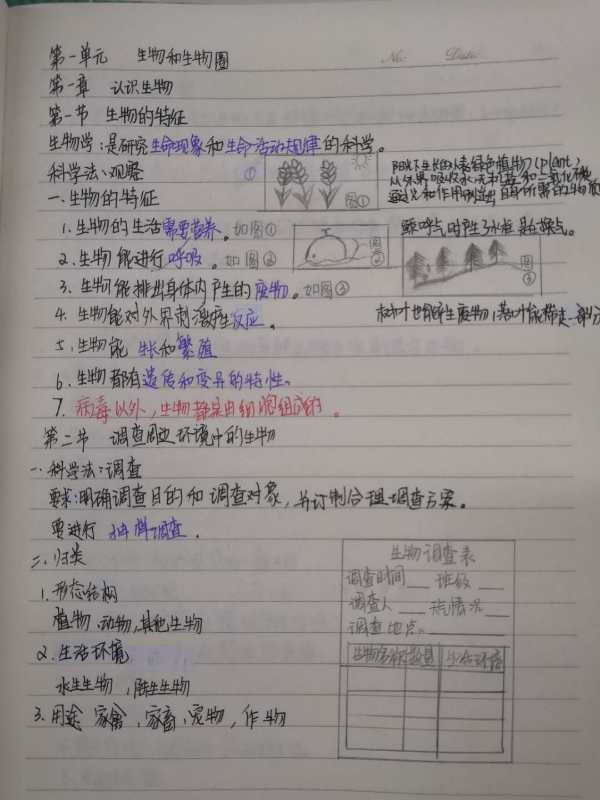 No.    Date
第一单元 生物和生物圈
第一章 认识生物
第一节 生物的特征
生物学:是研究生命现象和生命活动规律的科学。
科学法:观察 ①
图①
阳光下生长的绿色植物(plant)
从外界吸收水、无机盐和二氧化碳
通过光合作用制造出自身所需的有机物质
一.生物的特征
1.生物的生活需要营养。如图①
2.生物能进行呼吸。如图②
图②
鲸呼气时产生了水柱 是在换气。
图③
3.生物能排出身体内产生的废物。如图③
树叶也能产生废物,落叶能带走一部分
4.生物能对外界刺激产生反应。
5.生物能 生长和繁殖
6.生物都有遗传和变异的特性。
7.病毒以外,生物都是由细胞组成的。
第二节 调查周边环境中的生物
一.科学法:调查
要求:明确调查目的和调查对象,并订制合理调查方案。
要进行 抽样调查.
二.归类
1.形态结构
植物、动物,其他生物
2.生活环境
水生生物,陆生生物
3.用途 家禽,家畜,宠物,作物
生物调查表
调查时间 班级
调查人 天气情况
调查地点:
生物名称 数量 生活环境